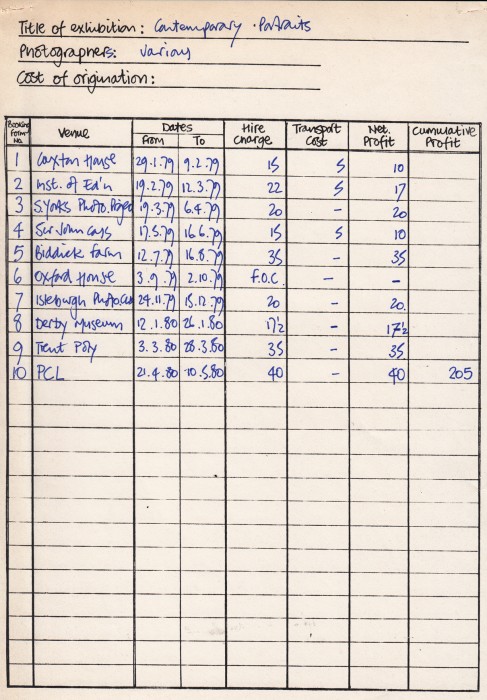 Title of exhibition: Contemporary Portraits
Photographers: Various
Cost of origination:
Booking Form No. Venue Dates From To Hire Charge Transport Cost Net. Profit Cumulative Profit
1 Caxton House 29.1.79 9.2.79 15 5 10
2 Inst. of Ed'n 19.2.79 12.3.79 22 5 17
3 S.Yorks Photo. Project 19.3.79 6.4.79 20 - 20
4 Sir John Cass 17.5.79 16.6.79 15 5 10
5 Biddick Farm 12.7.79 16.8.79 35 - 35
6 Oxford House 3.9.79 2.10.79 f.o.c. - -
7 Photo. 24.11.79 15.12.79 20 - 20.
8 Derby Museum 12.1.80 26.1.80 17½ - 17½
9 Trent Poly 3.3.80 28.3.80 35 - 35
10 PCL 21.4.80 10.5.80 40 - 40 205